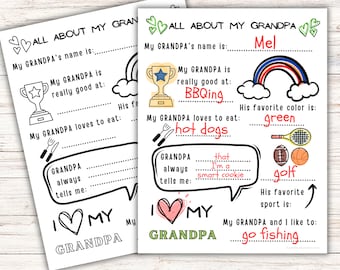 ALL ABOUT MY GRANDPA
My GRANDPA's name is:
My GRANDPA is
really good at:
His
My GRANDPA loves to eat:
GRANDPA
always
tells me:
I MY
GRANDPA
ALL ABOUT MY GRANDPA
My GRANDPA's name is: Mel
My GRANDPA is
really good at:
BBQing
His favorite color is:
green
My GRANDPA loves to eat:
hot dogs
GRANDPA that
always I'm a
tells me: smart cookie
golf
His favorite
sport is:
I MY
GRANDPA
My GRANDPA and I like to:
go fishing